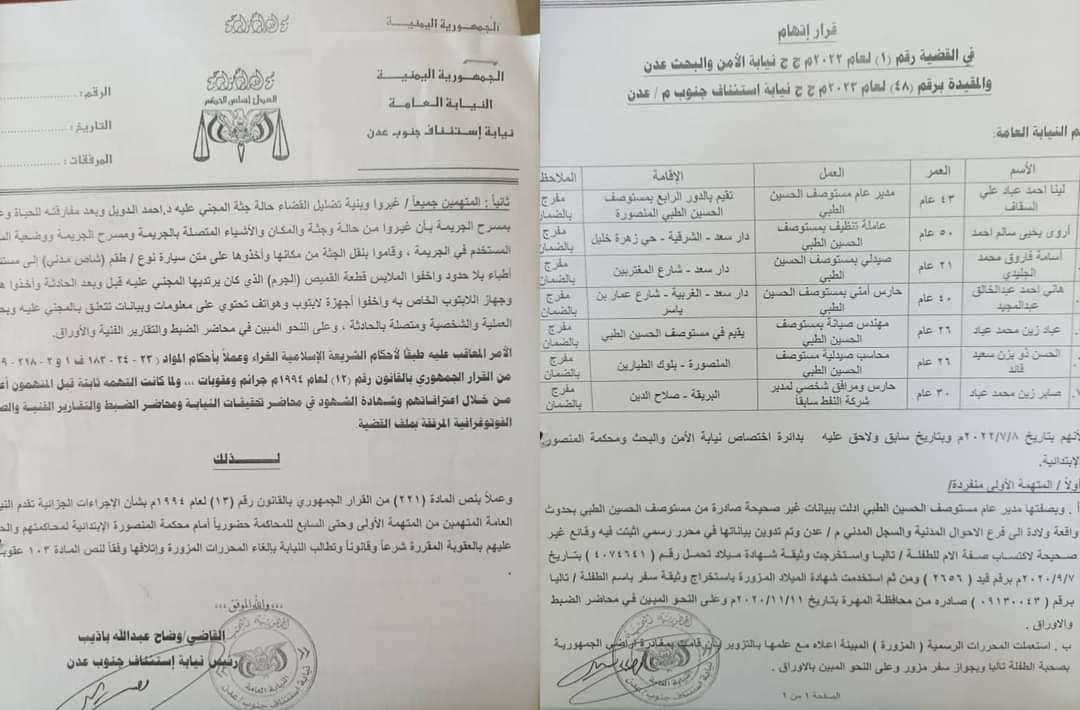 قرار إتهام
في القضية رقم (١) لعام ٢٠٢٢م ج ج نيابة الأمن والبحث عدن
والمقيدة برقم (٤٨) لعام ٢٠٢٣م ج ج نيابة استئناف جنوب م / عدن
النيابة العامة:
الأسم العمر العمل الإقامة
لينا احمد عياد علي السقاف ٤٣ عام مدير عام مستوصف الحسين الطبي تقيم بالدور الرابع بمستوصف الحسين الطبي المنصورة مفرج بالضمان
أروى يحيى سالم احمد ٥٠ عام عاملة تنظيف بمستوصف الحسين الطبي دار سعد - الشرقية - حي زهرة خليل مفرج بالضمان
أسامة فاروق محمد الجليدي ٢١ عام صيدلي بمستوصف الحسين الطبي دار سعد - شارع المغتربين مفرج بالضمان
هاني احمد عبدالخالق عبدالمجيد ٤٠ عام حارس أمني بمستوصف الحسين الطبي دار سعد - الغربية - شارع عمار بن ياسر مفرج بالضمان
عياد زين محمد عياد ٢٦ عام مهندس صيانة بمستوصف الحسين الطبي يقيم في مستوصف الحسين الطبي مفرج بالضمان
الحسن ذو يزن سعيد قائد ٢٦ عام محاسب صيدلية مستوصف الحسين الطبي المنصورة - بلوك الطيارين مفرج بالضمان
صابر زين محمد عياد ٣٠ عام حارس ومرافق شخصي لمدير شركة النفط سابقاً البريقة - صلاح الدين مفرج بالضمان
لأنهم بتاريخ ٢٠٢٢/٧/٨م وبتاريخ سابق ولاحق عليه بدائرة اختصاص نيابة الأمن والبحث ومحكمة
الإبتدائية.
أولاً / المتهمة الأولى منفردة/
أ . وبصفتها مدير عام مستوصف الحسين الطبي ادلت ببيانات غير صحيحة صادرة من مستوصف الحسين الطبي بحدوث
واقعة ولادة الى فرع الاحوال المدنية والسجل المدني م / عدن وتم تدوين بياناتها في محرر رسمي اثبتت فيه وقائع غير
صحيحة لاكتساب صفة الام للطفلة / تاليا واستخرجت وثيقة شهادة ميلاد تحمل رقم ( ٤٠٧٤٦٤١ ) بتاريخ
٢٠٢٠/٩/٧م برقم قيد ( ٢٦٥٦ ) ومن ثم استخدمت شهادة الميلاد المزورة باستخراج وثيقة سفر باسم الطفلة / تاليا
برقم ( ٠٩١٣٠٠٤٣ ) صادره من محافظة المهرة بتاريخ ٢٠٢٠/١١/١١م وعلى النحو المبين في محاضر الضبط
والاوراق .
ب . استعملت المحررات الرسمية ( المزورة ) المبينة اعلاه مع علمها بالتزوير بأن قامت بمغادرة اراضي الجمهورية
بصحبة الطفلة تاليا وبجواز سفر مزور وعلى النحو المبين بالاوراق .
الصفحة ١ من ١
الجمهورية اليمنية
الجمهورية اليمنية
النيابة العامة
نيابة إستئناف جنوب عدن
العدل اساس الحكم
الرقم :
التاريخ :
المرفقات :
ثانياً : المتهمين جميعاً / غيروا وبنية تضليل القضاء حالة جثة المجني عليه د.احمد الدويل وبعد مفارقته للحياة
بمسرح الجريمة بأن غيروا من حالة وجثة والمكان والأشياء المتصلة بالجريمة ومسرح الجريمة ووضعية
المستخدم في الجريمة ، وقاموا بنقل الجثة من مكانها وأخذوها على متن سيارة نوع / طقم (شاص مدني) إلى
أطباء بلا حدود واخفوا الملابس قطعة القميص (الجرم) الذي كان يرتديها المجني عليه قبل وبعد الحادثة وأخذوا
وجهاز اللابتوب الخاص به واخفوا أجهزة لابتوب وهواتف تحتوي على معلومات وبيانات تتعلق بالمجني عليه
العملية والشخصية ومتصلة بالحادثة ، وعلى النحو المبين في محاضر الضبط والتقارير الفنية والأوراق.
الأمر المعاقب عليه طبقاً لأحكام الشريعة الإسلامية الغراء وعملاً بأحكام المواد ( ٢٣ - ٢٤ - ١٨٣ ف ١ و ٢ - ٢١٨ -
من القرار الجمهوري بالقانون رقم (١٢) لعام ١٩٩٤م جرائم وعقوبات ... ولما كانت التهمه ثابتة قبل المتهمون
من خلال اعترافاتهم وشهادة الشهود في محاضر تحقيقات النيابة ومحاضر الضبط والتقارير الفنية
الفوتوغرافية المرفقة بملف القضية.
لــــذلك
وعملاً بنص المادة (٢٢١) من القرار الجمهوري بالقانون رقم (١٣) لعام ١٩٩٤م بشأن الإجراءات الجزائية تقدم
العامة المتهمين من المتهمة الأولى وحتى السابع للمحاكمة حضورياً أمام محكمة المنصورة الإبتدائية لمحاكمتهم
عليهم بالعقوبة المقررة شرعاً وقانوناً وتطالب النيابة بإلغاء المحررات المزورة وإتلافها وفقاً لنص المادة ١٠٣
،،،والله الموفق،،،
القاضي/وضاح عبدالله باذيب
رئيس نيابة إستئناف جنوب عدن